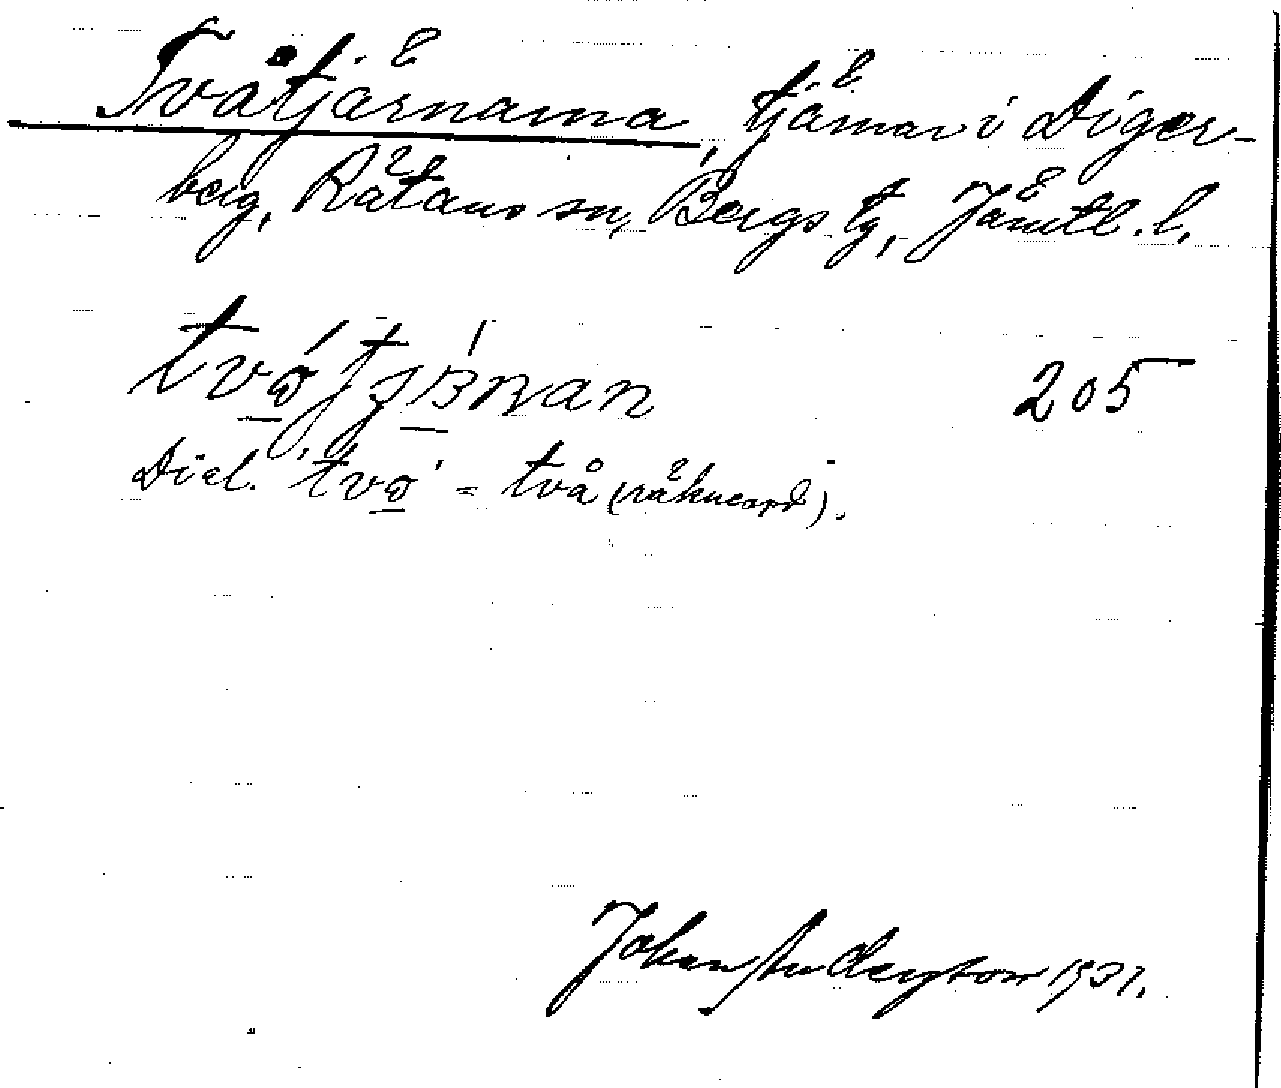 Tvåtjärnarna, tjärnar i Diger-
berg, Rätans sn, Bergs tg, Jämtl. l.
205
Dial. tvo = två (räkneord).
Johan Anderson 1931.